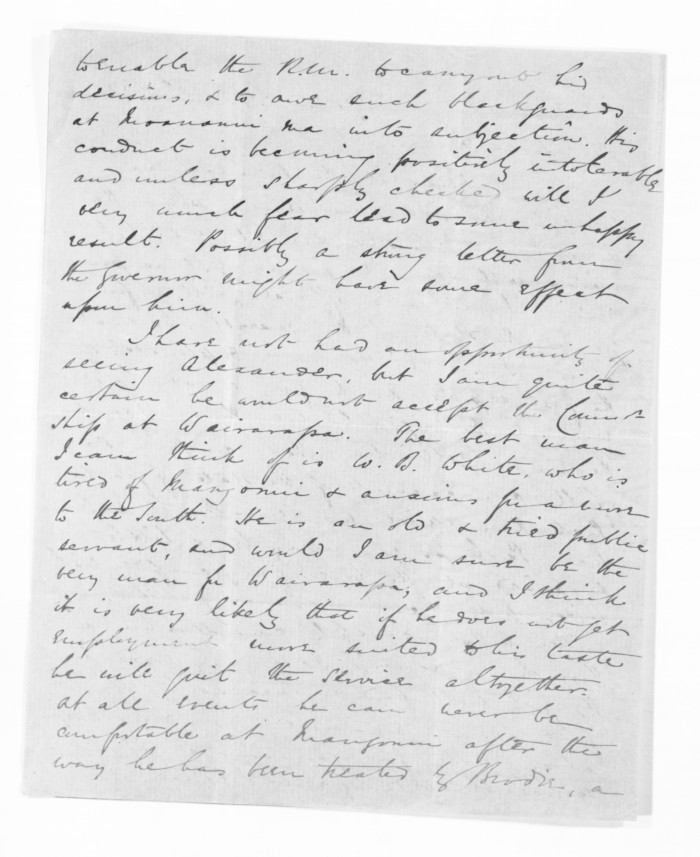 to enable the R.M. to carry out his
decisions, & to awe such blackguards
at Moananui ma into subjection. His
conduct is becoming positively intolerable
and unless sharply checked will I
very much fear lead to some unhappy
result. Possibly a strong letter from
the Governor might have some effect
upon him.
I have not had an opportunity of
seeing Alexander, but I am quite
certain he would not accept the
ship at Wairarapa. The best man
I can think of is W. B. White, who is
tired of Mangonui & anxious for a move
to the South. He is an old & tried public
servant, and would I am sure be the
very man for Wairarapa; and I think
it is very likely that if he does not get
employment more suited to his taste
he will quit the service altogether.
At all events he can never be
comfortable at Mangonui after the
way he has been treated by Brodie, a